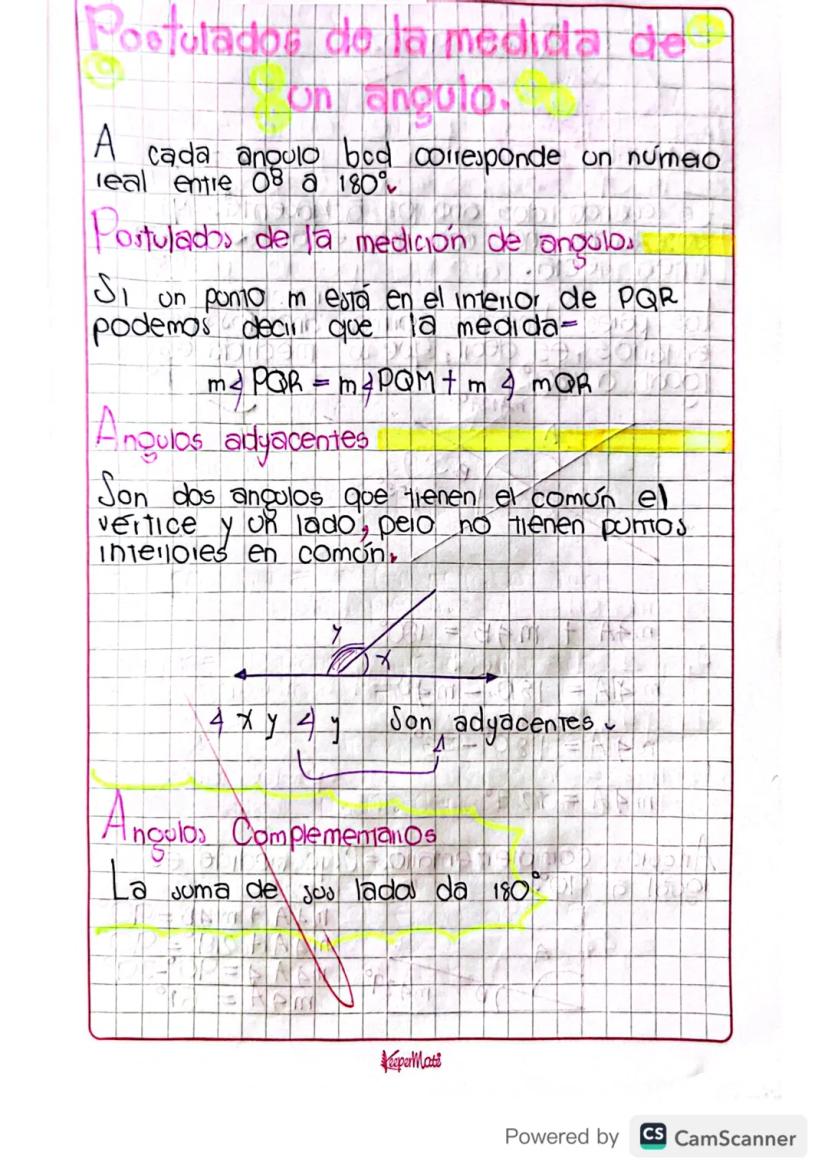 Postulados de la medida de
un angulo.
A cada angulo bcd corresponde un número
real entre 0º a 180°.
Postulados de la medición de angulos
Si un punto m está en el interior de PQR
podemos decir que la medida=
m∢ PQR = m∢PQM + m ∢ mQR
Angulos adyacentes
Son dos angulos que tienen el común el
vértice y un lado, pero no tienen puntos
interiores en común.
y
x
∢ x y ∢ y Son adyacentes.
Angulos Complementarios
La suma de sus lados da 180°
KeeperMate
Powered by CS CamScanner